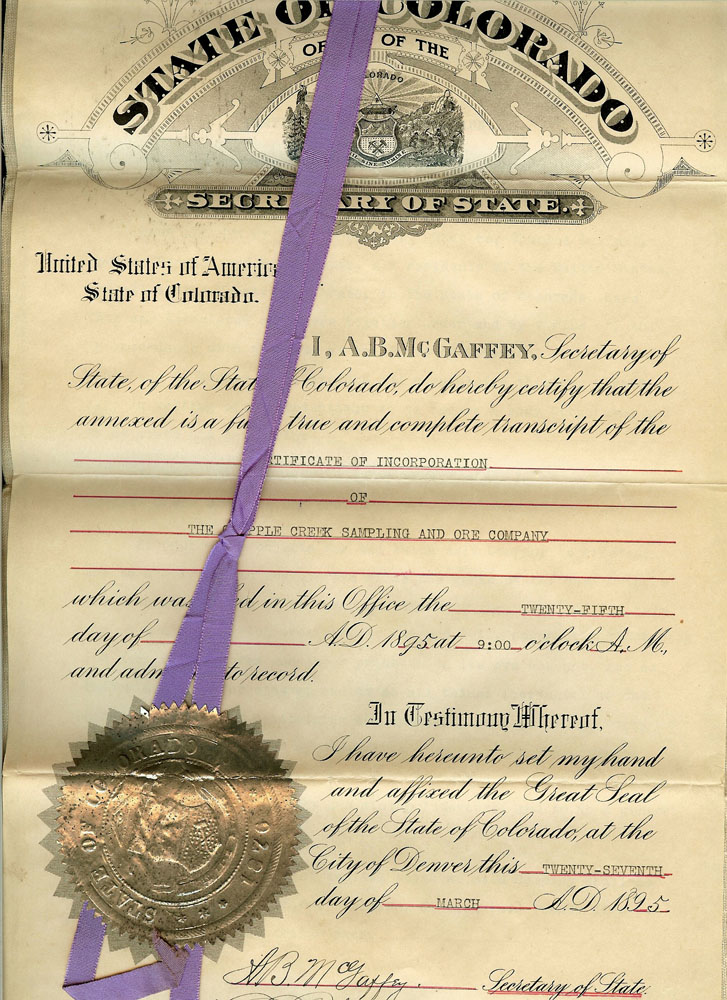 STATE OF COLORADO
OF OF THE
COLORADO
SECRETARY OF STATE.
United States of America
State of Colorado.
I, A.B. McGAFFEY, Secretary of
State, of the State Colorado, do hereby certify that the
annexed is a fu true and complete transcript of the
TIFICATE OF INCORPORATION
OF
THE C PPLE CREEK SAMPLING AND ORE COMPANY
which was d in this Office the TWENTY-FIFTH
day of A.D. 1895 at 9:00 o'clock A.M.,
and adm to record.
In Testimony Whereof,
I have hereunto set my hand
and affixed the Great Seal
of the State of Colorado, at the
City of Denver this TWENTY-SEVENTH
day of MARCH A.D. 1895
A B McGaffey. Secretary of State.
STATE OF COLORADO